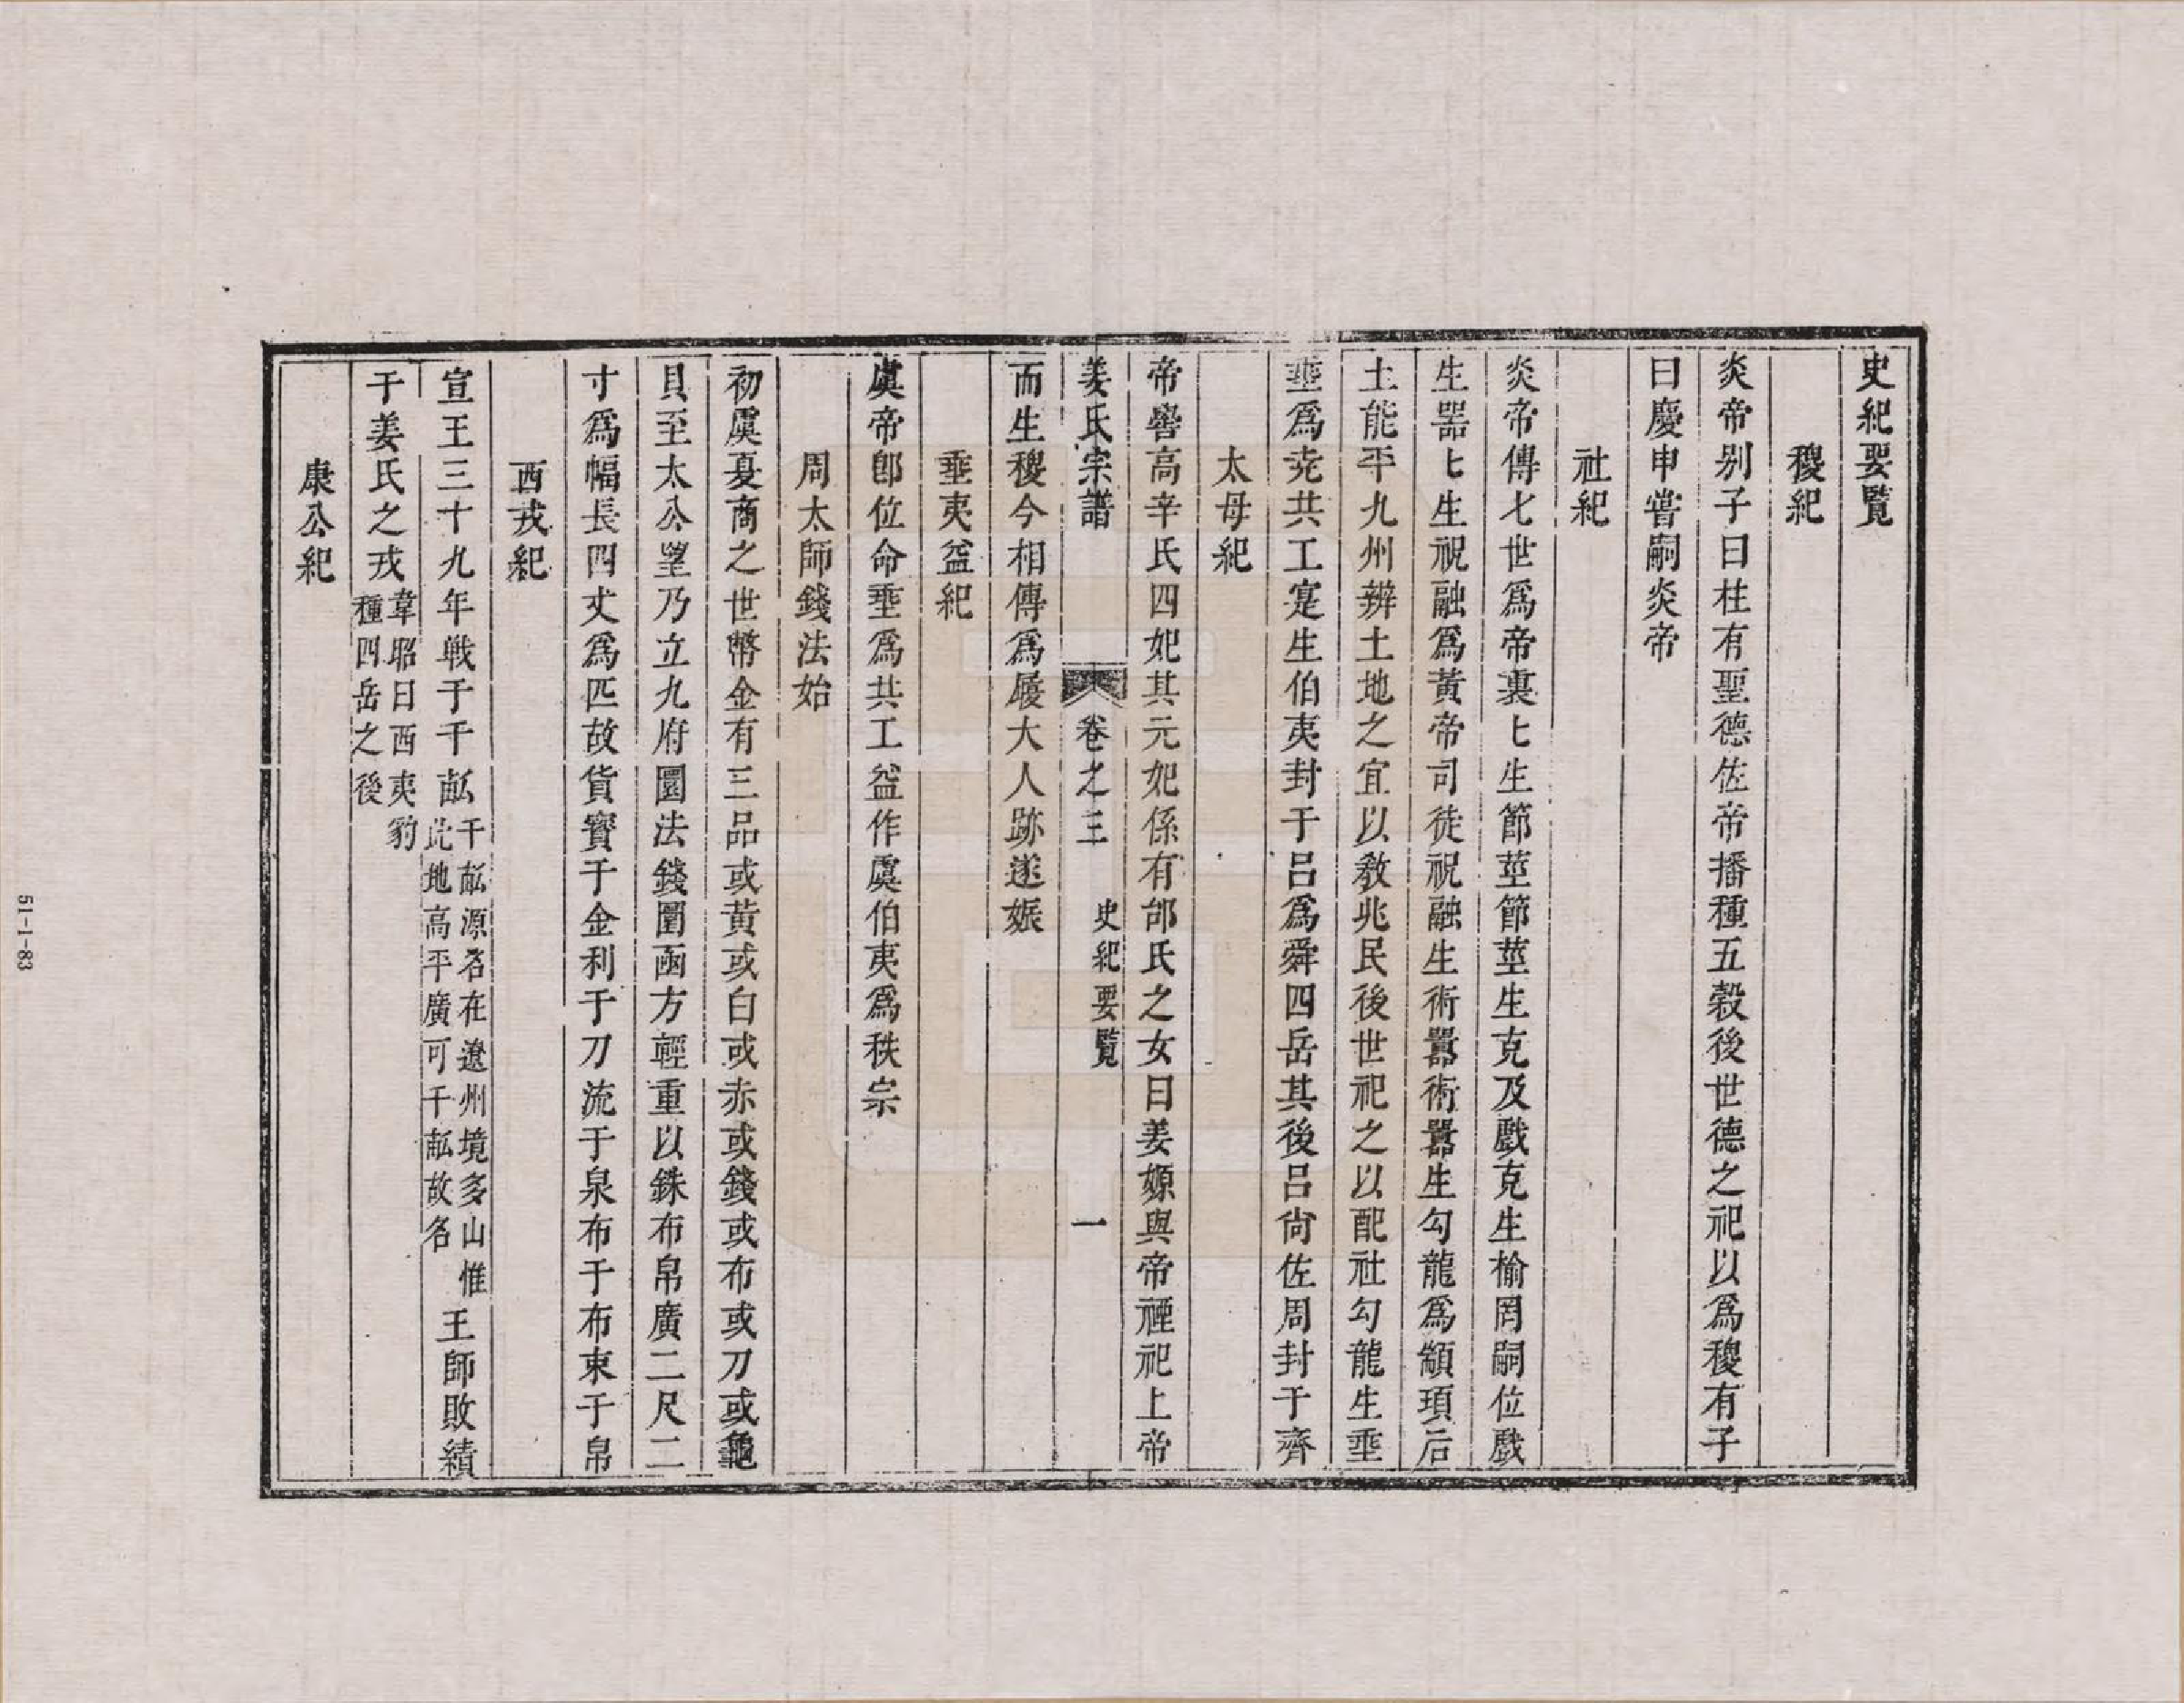 史紀要覽
稷紀
炎帝别子曰柱有聖德佐帝播種五穀後世德之祀以爲稷有子
曰慶甲嘗嗣炎帝
社紀
炎帝傳七世爲帝裏七生節莖節莖生克及戲克生榆罔嗣位戲
生噐七生祝融爲黃帝司徒祝融生術嚣術嚣生勾龍爲顓頊后
土能平九州辨土地之宜以敎兆民後世祀之以配社勾龍生垂
垂爲尭共工寔生伯夷封于呂爲舜四岳其後呂尙佐周封于齊
太母紀
帝嚳高辛氏四妃其元妃係有邰氏之女曰姜嫄與帝禋祀上帝
姜氏宗譜 卷之三 史紀要覽 一
而生稷今相傳爲履大人跡遂娠
垂夷益紀
虞帝卽位命垂爲共工益作虞伯夷爲秩宗
周太師錢法始
初虞夏商之世幣金有三品或黃或白或赤或錢或布或刀或龜
貝至太公望乃立九府圜法錢圜函方輕重以銖布帛廣二尺二
寸爲幅長四丈爲匹故貨寶于金利于刀流于泉布于布束于帛
西戎紀
宣王三十九年戰于千畝千畝源名在遼州境多山惟此地高平廣可千畝故名王師敗績
于姜氏之戎韋昭曰西夷豹種四岳之後
康公紀
51-1-83